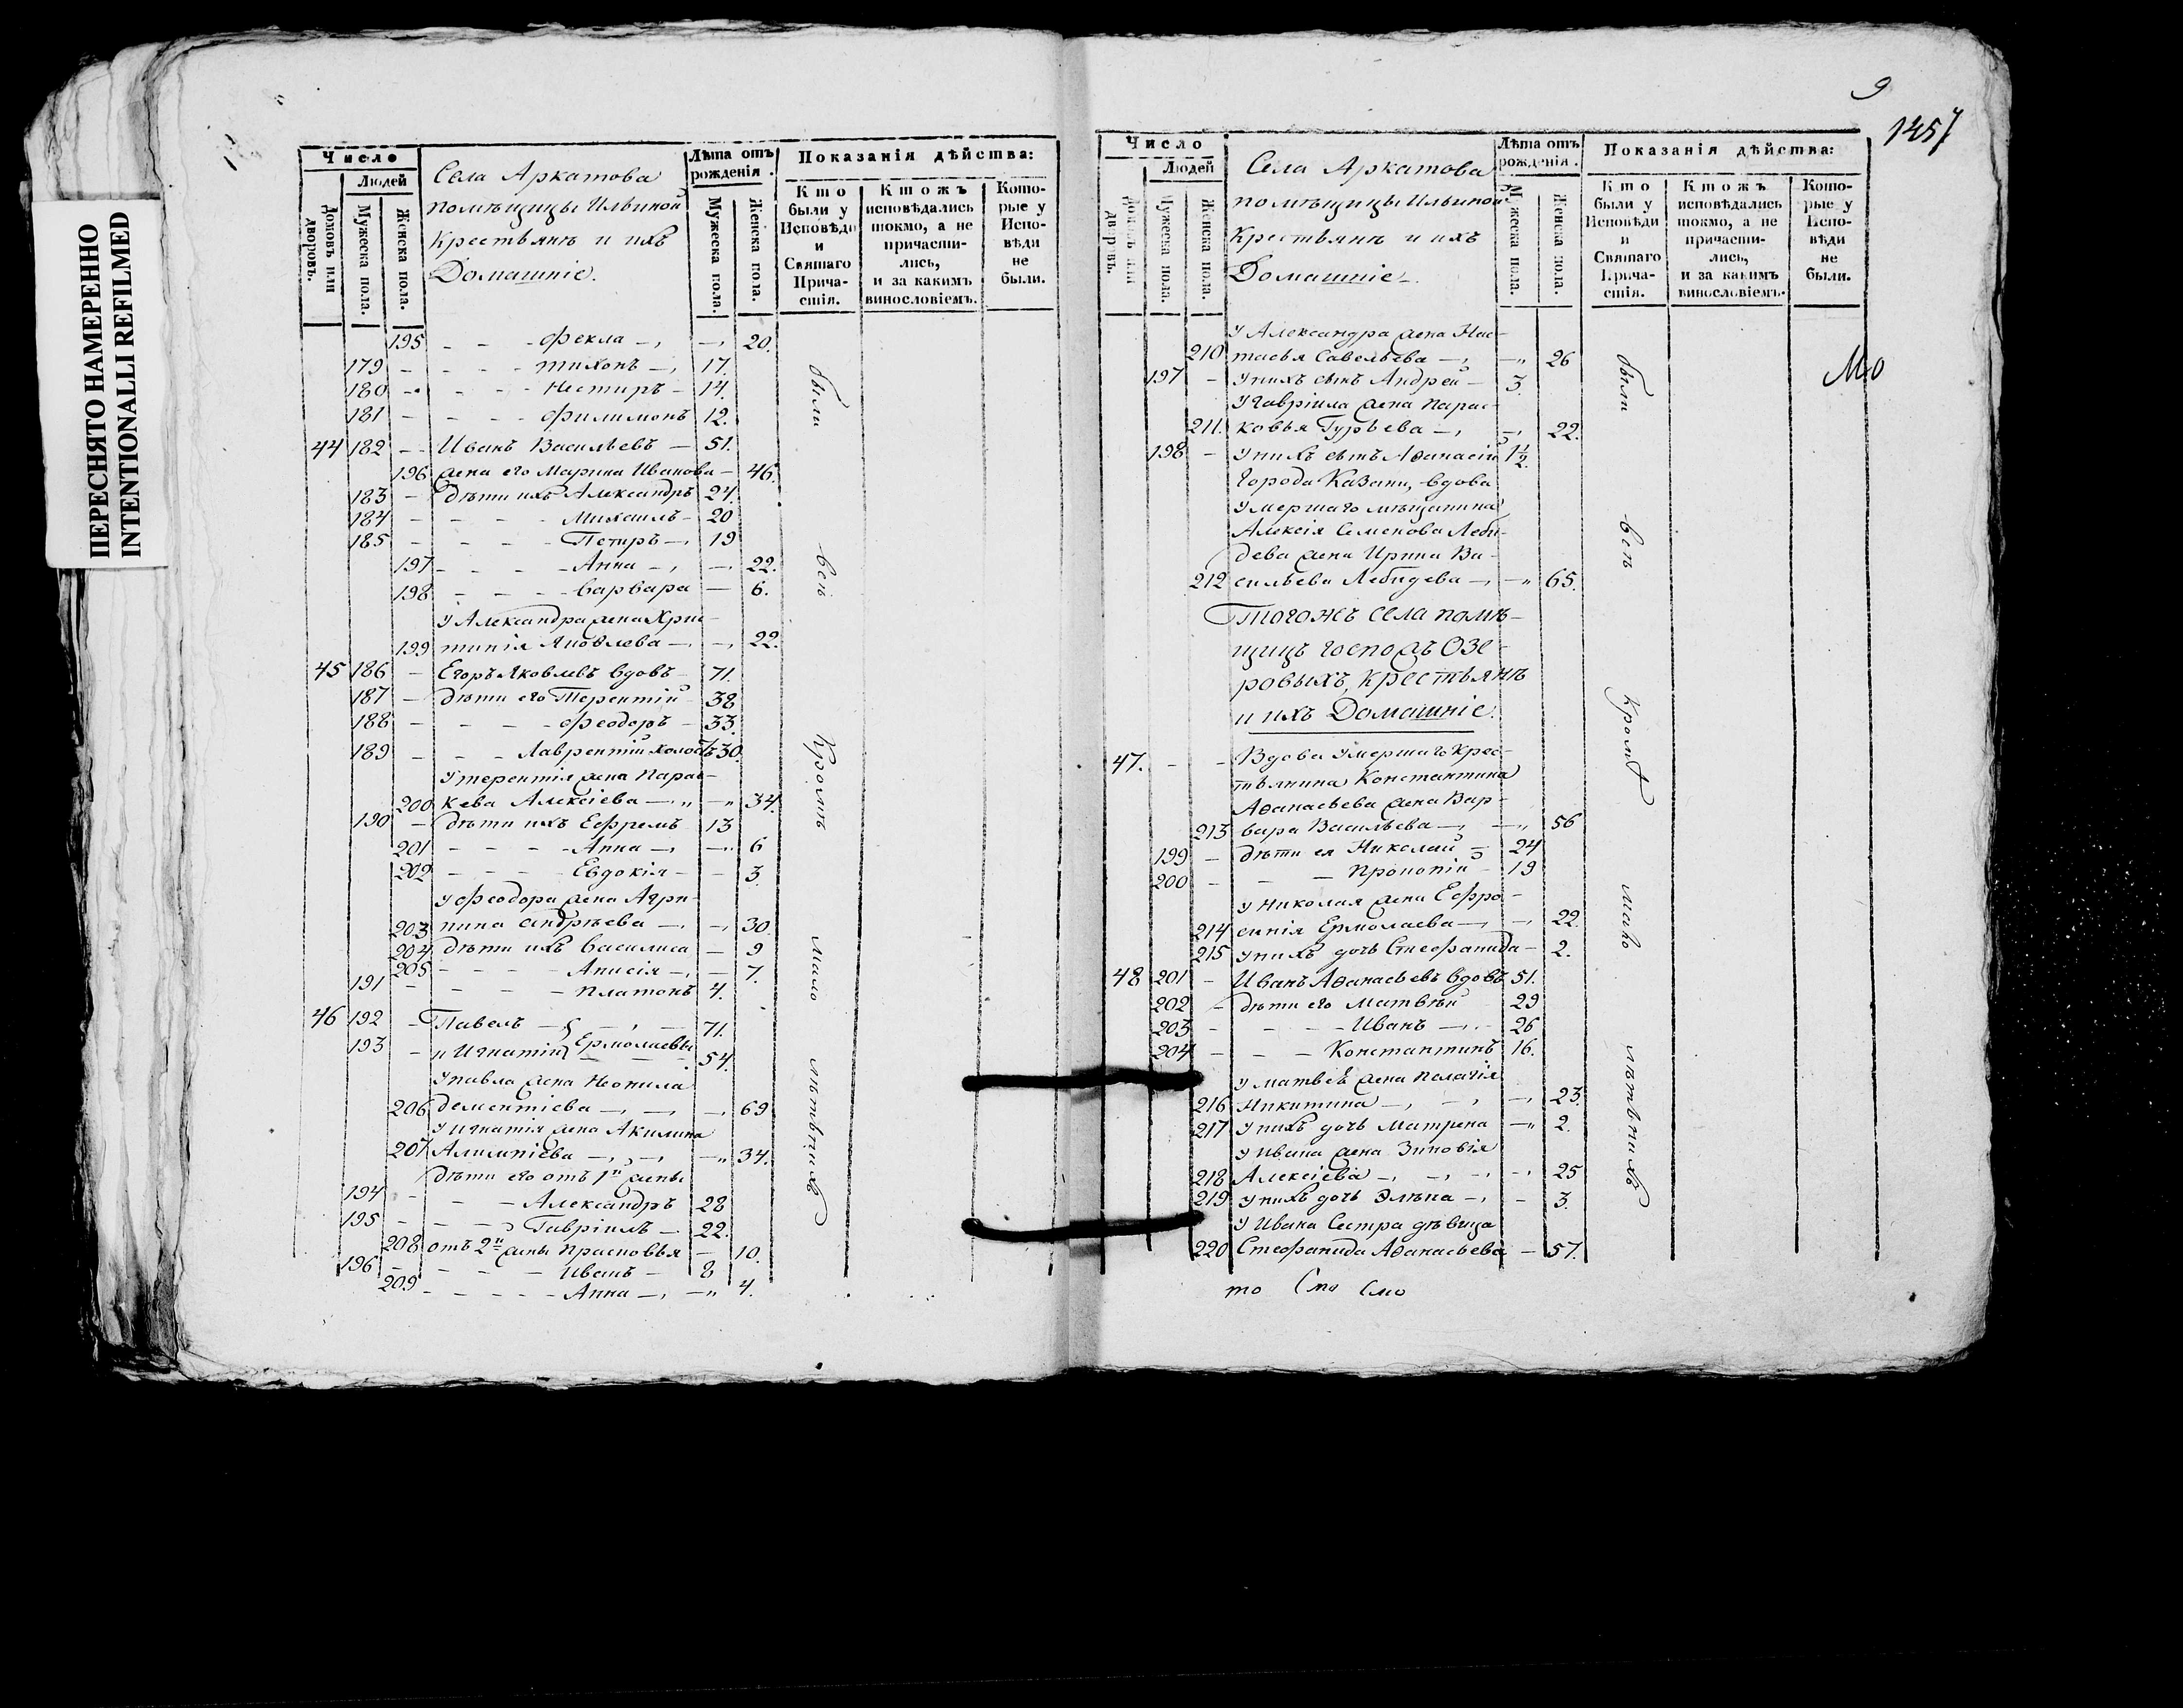 ПЕРЕСНЯТО НАМЕРЕННО
INTENTIONALLI REFILMED
Число
Людей
Домовъ или дворовъ.
Мужеска пола.
Женска пола.
Села Аркатова
помѣщицы Ильиной
Крестьянъ и ихъ
Домашніе.
Лѣта отъ рожденія.
Мужеска пола.
Женска пола.
Показанія дѣйства:
Кто были у Исповѣди и Святаго Причастія.
Ктожъ исповѣдались токмо, а не причастились, и за какимъ винословіемъ.
Которые у Исповѣди не были.
195 - - - Фекла - - 20.
179 - - - - Тихонъ - 17.
180 - - - - Нестиръ - 14.
181 - - - - Филимонъ 12.
44 182 - - Иванъ Васильевъ - 51.
196 жена его Марина Иванова - 46.
183 - дѣти ихъ Александръ 24.
184 - - - - Михаилъ - 20
185 - - - - Петиръ - 19
197 - - - - Анна - - 22.
198 - - - - Варвара - 6.
у Александра жена Хрис-
199 тинія Яковлева - - 22.
45 186 - Егоръ Яковлевъ вдовъ - 71.
187 - дѣти его Терентій 38
188 - - - - Феодоръ - 33.
189 - - - Лаврентій холостъ 30.
у Терентія жена Парас-
200 кева Алексіева - - 34.
190 - дѣти ихъ Ефремъ 13
201 - - - - Анна - - 6
202 - - - - Евдокія - - 3.
у Феодора жена Агри-
203 пина Андрѣева - - 30.
204 дѣти ихъ Василиса - 9
205 - - - - Анисія - - 7.
191 - - - - Платонъ 4.
46 192 - Павелъ - 71.
193 - и Игнатій Ермолаевы 54.
у Павла жена Неонила
206 Дементіева - - - 69
у Игнатія жена Акилина
207 Алимпіева - - - 34.
дѣти его отъ 1й жены
194 - - - Александръ 28
195 - - - Гавріилъ - 22.
208 отъ 2й жены Прасковья - 10.
196 - - - - Иванъ - 8
209 - - - - Анна - - 4.
были
всѣ
Кромѣ
мало
лѣтныхъ
9
1457
Число
Людей
Домовъ или дворовъ.
Мужеска пола.
Женска пола.
Села Аркатова
помѣщицы Ильиной
Крестьянъ и ихъ
Домашніе.
Лѣта отъ рожденія.
Мужеска пола.
Женска пола.
Показанія дѣйства:
Кто были у Исповѣди и Святаго Причастія.
Ктожъ исповѣдались токмо, а не причастились, и за какимъ винословіемъ.
Которые у Исповѣди не были.
у Александра жена Нас-
210 тасья Савельева - - 26
197 - у нихъ сынъ Андрей - 3.
у Гавріила жена Парас-
211. ковья Гурьева - - 22.
198 - у нихъ сынъ Аѳанасій 1½.
Города Казани, вдова
умершаго мѣщанина
Алексія Семенова Лебе-
дева жена Ирина Ва-
212 сильева Лебидева - - 65.
Тогожъ села помѣ-
щицъ господъ Озе-
ровыхъ, крестьянъ
и ихъ Домашніе.
47. - - Вдова умершаго Крес-
тьянина Константина
Аѳанасьева жена Вар-
213 вара Васильева - - 56
199 - дѣти ея Николай - 24
200 - - - Прокопій - 19
у Николая жена Ефро-
214 синія Ермолаева - - 22.
215 у нихъ дочь Стефанида - 2.
48 201 - Иванъ Аѳанасьевъ вдовъ 51.
202 - дѣти его Матвѣй 29
203 - - - - Иванъ - - 26
204 - - - Константинъ 16.
у Матвея жена Пелагія
216 Никитина - - - 23.
217 у нихъ дочь Матрена - 2.
у Ивана жена Зиновія
218 Алексіева - - - 25
219 у нихъ дочь Элѣна - - 3.
у Ивана Сестра дѣвица
220 Стефанида Аѳанасьева - 57.
были
всѣ
Кромѣ
мало
лѣтныхъ